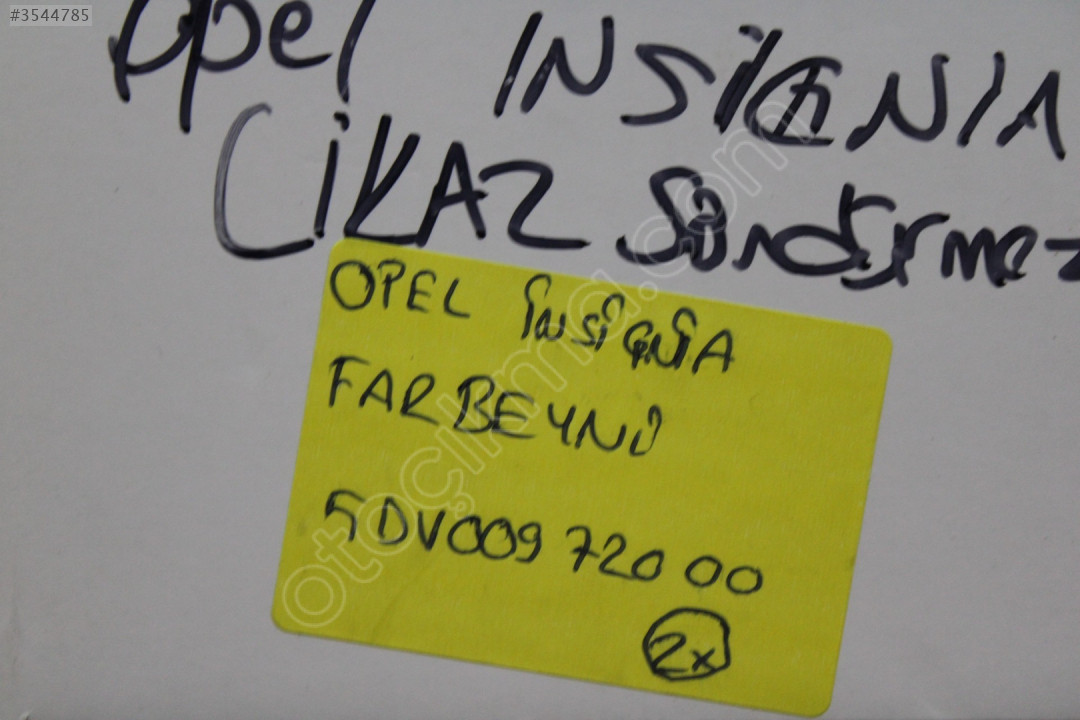 #3544785
Opel INSİGNIA
CİKAZ Söndürme
OPEL İNSİGNİA
FAR BEYNİ
5DV009 720 00
2x
otoçıkma.com